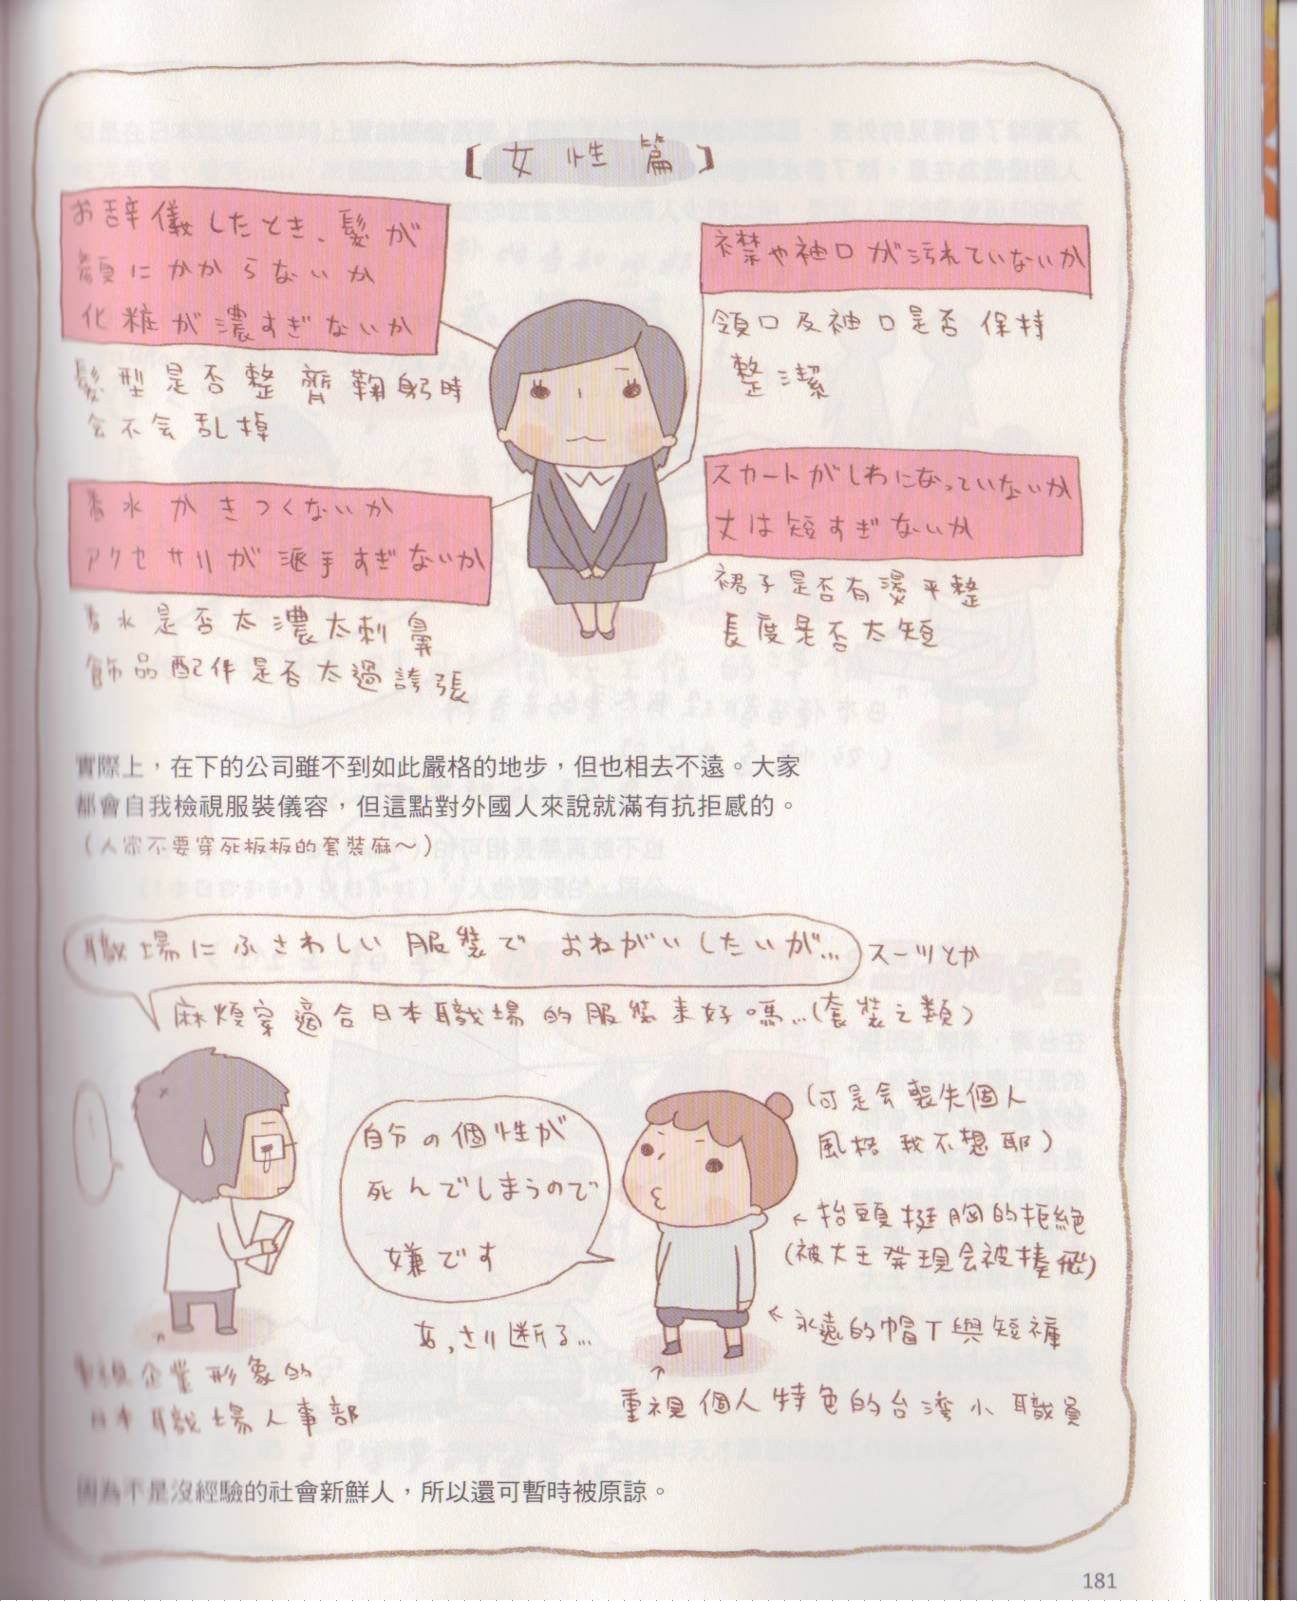 【女性篇】
お辞儀したとき、髪が
顔にかからないか
化粧が濃すぎないか
髮型是否整齊鞠躬時
会不会乱掉
襟や袖口が汚れていないか
領口及袖口是否保持
整潔
香水がきつくないか
アクセサリが派手すぎないか
香水是否太濃太刺鼻
飾品配件是否太過誇張
スカートがしわになっていないか
丈は短すぎないか
裙子是否有燙平整
長度是否太短
實際上，在下的公司雖不到如此嚴格的地步，但也相去不遠。大家
都會自我檢視服裝儀容，但這點對外國人來說就滿有抗拒感的。
（人家不要穿死板板的套裝麻～）
職場にふさわしい服装でおねがいしたいが… スーツとか
麻煩穿適合日本職場的服裝來好嗎…（套裝之類）
自分の個性が
死んでしまうので
嫌です
あっさり断る…
（可是会喪失個人
風格我不想耶）
←抬頭挺胸的拒絕
（被大王発現会被揍飛）
←永遠的帽T與短褲
↑
重視企業形象的
日本職場人事部
↑
重視個人特色的台湾小職員
因為不是沒經驗的社會新鮮人，所以還可暫時被原諒。
181